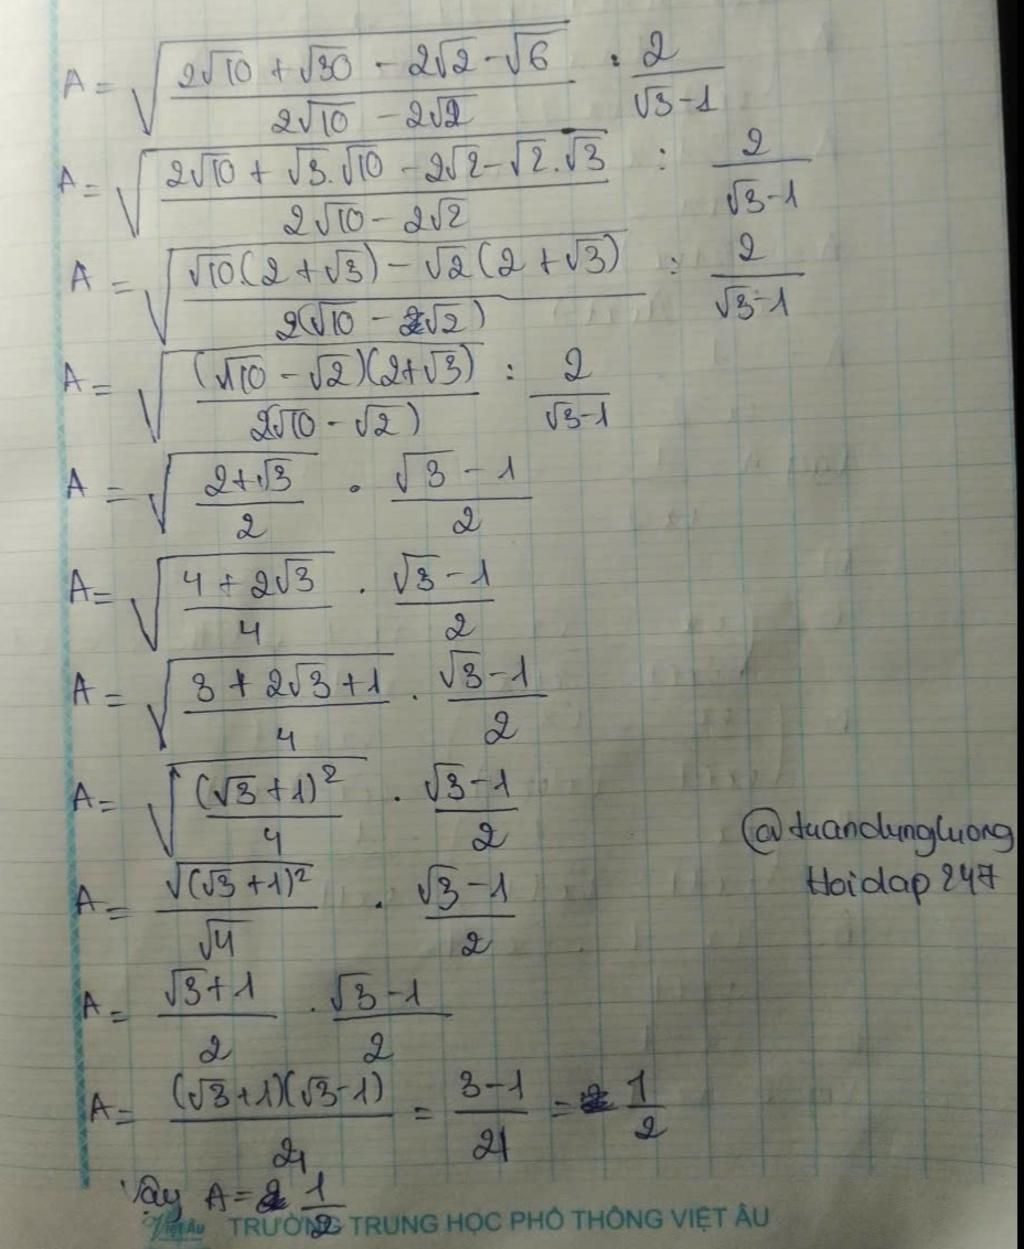 A = √((2√10 + √30 - 2√2 - √6)/(2√10 - 2√2)) : 2/(√3-1)
A = √((2√10 + √3.√10 - 2√2 - √2.√3)/(2√10 - 2√2)) : 2/(√3-1)
A = √((√10.(2+√3) - √2(2+√3))/(2(√10 - √2))) : 2/(√3-1)
A = √((√10 - √2)(2+√3)/(2√10 - √2)) : 2/(√3-1)
A = √((2+√3)/2) . (√3-1)/2
A = √((4+2√3)/4) . (√3-1)/2
A = √((3+2√3+1)/4) . (√3-1)/2
A = √((√3+1)²/4) . (√3-1)/2
@tuandungluong
Hoidap247
A = √(√3+1)²/√4 . (√3-1)/2
A = (√3+1)/2 . (√3-1)/2
A = (√3+1)(√3-1)/4 = (3-1)/4 = 1/2
Vậy A = 1/2
TRƯỜNG TRUNG HỌC PHỔ THÔNG VIỆT ÂU